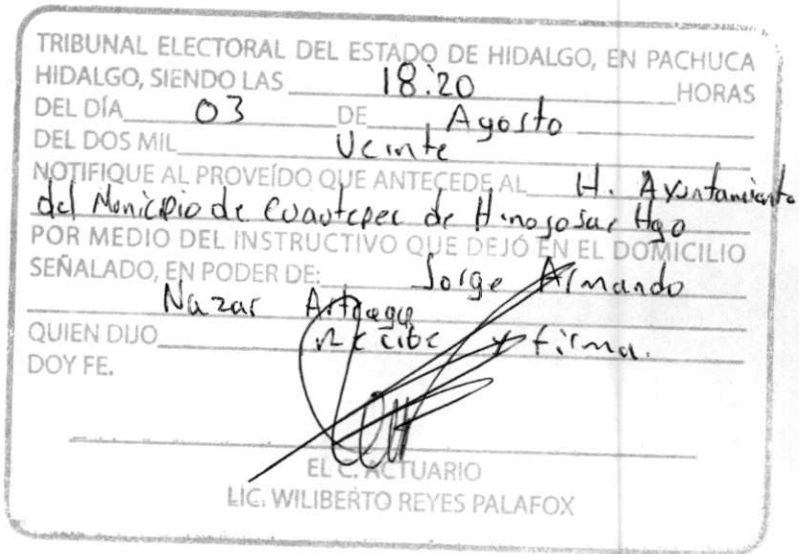 TRIBUNAL ELECTORAL DEL ESTADO DE HIDALGO, EN PACHUCA
HIDALGO, SIENDO LAS 18:20 HORAS
DEL DÍA 03 DE Agosto
DEL DOS MIL Veinte
NOTIFIQUE AL PROVEÍDO QUE ANTECEDE AL H. Ayuntamiento
del Municipio de Cuautepec de Hinojosa, Hgo
POR MEDIO DEL INSTRUCTIVO QUE DEJÓ EN EL DOMICILIO
SEÑALADO, EN PODER DE: Jorge Armando
Nazar
QUIEN DIJO recibe y firma.
DOY FE.
EL C. ACTUARIO
LIC. WILIBERTO REYES PALAFOX